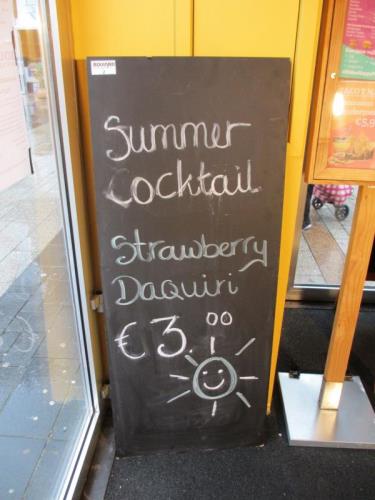 Summer
Cocktail
Strawberry
Daquiri
€3.00